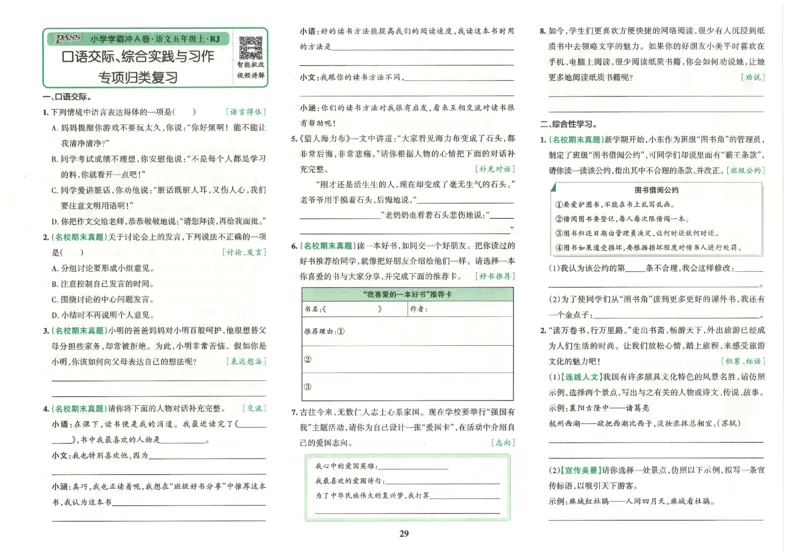 PASS 小学学霸冲A卷·语文五年级上·RJ
口语交际、综合实践与习作
专项归类复习
智能批改
视频讲解
一、口语交际。
1. 下列情境中语言表达得体的一项是(　　) [语言得体]
A. 妈妈提醒你游戏不要玩太久,你说:“你好烦啊!能不能让
我清净清净?”
B. 同学考试成绩不理想,你安慰他说:“不是每个人都是学习
的料,你就看开一点吧!”
C. 同学爱讲脏话,你劝他说:“脏话既脏人耳,又伤人心,我们
要注意文明用语啊!”
D. 你把作文交给老师,恭恭敬敬地说:“请您拜读,再给我面批。”
2. (名校期末真题)关于讨论会上的发言,下列说法不正确的一项
是(　　) [讨论、发言]
A. 分组讨论要形成小组意见。
B. 注意控制自己发言的时间。
C. 围绕讨论的中心问题发言。
D. 小结时不再说明个人意见。
3. (名校期末真题)小明的爸爸妈妈对小明百般呵护,他很想替父
母分担些家务,却常被拒绝。为此,小明非常苦恼。假如你是
小明,你该如何向父母表达自己的想法呢? [表达想法]
4. (名校期末真题)请你将下面的人物对话补充完整。 [交流]
小语:在课下,读书便是我的消遣。我最近读完了《____
____》,书中我最喜欢的人物是________。
小文:我也特别喜欢他,因为________
小涵:真巧,我也正读着呢,我想在“班级好书分享”中推荐这本
书,我认为这本书________
小语:好的读书方法能提高我们的阅读效果,我读这本书时用
的方法是________
小文:我跟你的读书方法不同,________
小涵:你们的读书方法对我很有启发,看来互相交流对读书很
有帮助呢!
5. 《猎人海力布》一文中讲道:“大家看见海力布变成了石头,都
非常后悔,非常悲痛。”请你根据人物的心情把下面的对话补
充完整。 [补充对话]
“刚才还是活生生的人,现在却变成了毫无生气的石头。”
老爷爷用手摸着石头,后悔地说,“________
________”老奶奶也看着石头悲伤地说:“________
________”
6. (名校期末真题)读一本好书,如同交一个好朋友。把你读过的
好书推荐给同学,就像把好朋友介绍给他们一样。请选择一本
你喜爱的书与大家分享,并完成下面的推荐卡。 [好书推荐]
“我喜爱的一本好书”推荐卡
书名:《　　　　》 作者:
推荐理由:①
②
③
7. 古往今来,无数仁人志士心系家国。现在学校要举行“强国有
我”主题活动,请你为自己设计一张“爱国卡”,在活动中介绍自
己的爱国志向。 [志向]
我心中的爱国英雄:________
我最喜欢的爱国诗句:________
为了中华民族伟大的复兴梦,我打算________
8. 如今,学生们更喜欢方便快捷的网络阅读,很少有人沉浸到纸
质书中去领略文字的魅力。如果你的好朋友小美平时喜欢在
手机、电脑上阅读,很少阅读纸质书籍,你会如何劝说她,让她
更多地阅读纸质书籍呢? [劝说]
二、综合性学习。
1. (名校期末真题)新学期开始,小东作为班级“图书角”的管理员,
制定了班级“图书借阅公约”,可同学们却说里面有“霸王条款”,
请你读一读该公约,指出其中不合理的条款,并改正。[班级公约]
图书借阅公约
①要爱护图书,不能在书上乱写乱画。
②借阅图书要登记,每人每次限借阅一本。
③图书归还日期由管理员决定,让何时还就何时还。
④图书如果遭受损坏,要根据损坏程度对借书人进行处罚。
(1)我认为该公约的第____条不合理,我会这样修改:________
________。
(2)为了使同学们从“图书角”读到更多更好的课外书,我还有
一个金点子:________。
2. “读万卷书,行万里路。”走出书斋,畅游天下,外出旅游已经成
为人们生活的时尚。让我们放松心情,踏上旅程,来感受旅游
文化的魅力吧! [积累、标语]
(1)【连线人文】我国有许多颇具文化特色的风景名胜,请仿照
示例,选择两个景点,写出与之有关的人物或诗文、传说、故事。
示例:襄阳古隆中——诸葛亮
杭州西湖——欲把西湖比西子,淡妆浓抹总相宜。(苏轼)
(2)【宣传美景】请你选择一处景点,仿照以下示例,拟写一条宣
传标语,以吸引天下游客。
示例:麻城红杜鹃——人间四月天,麻城看杜鹃。
29